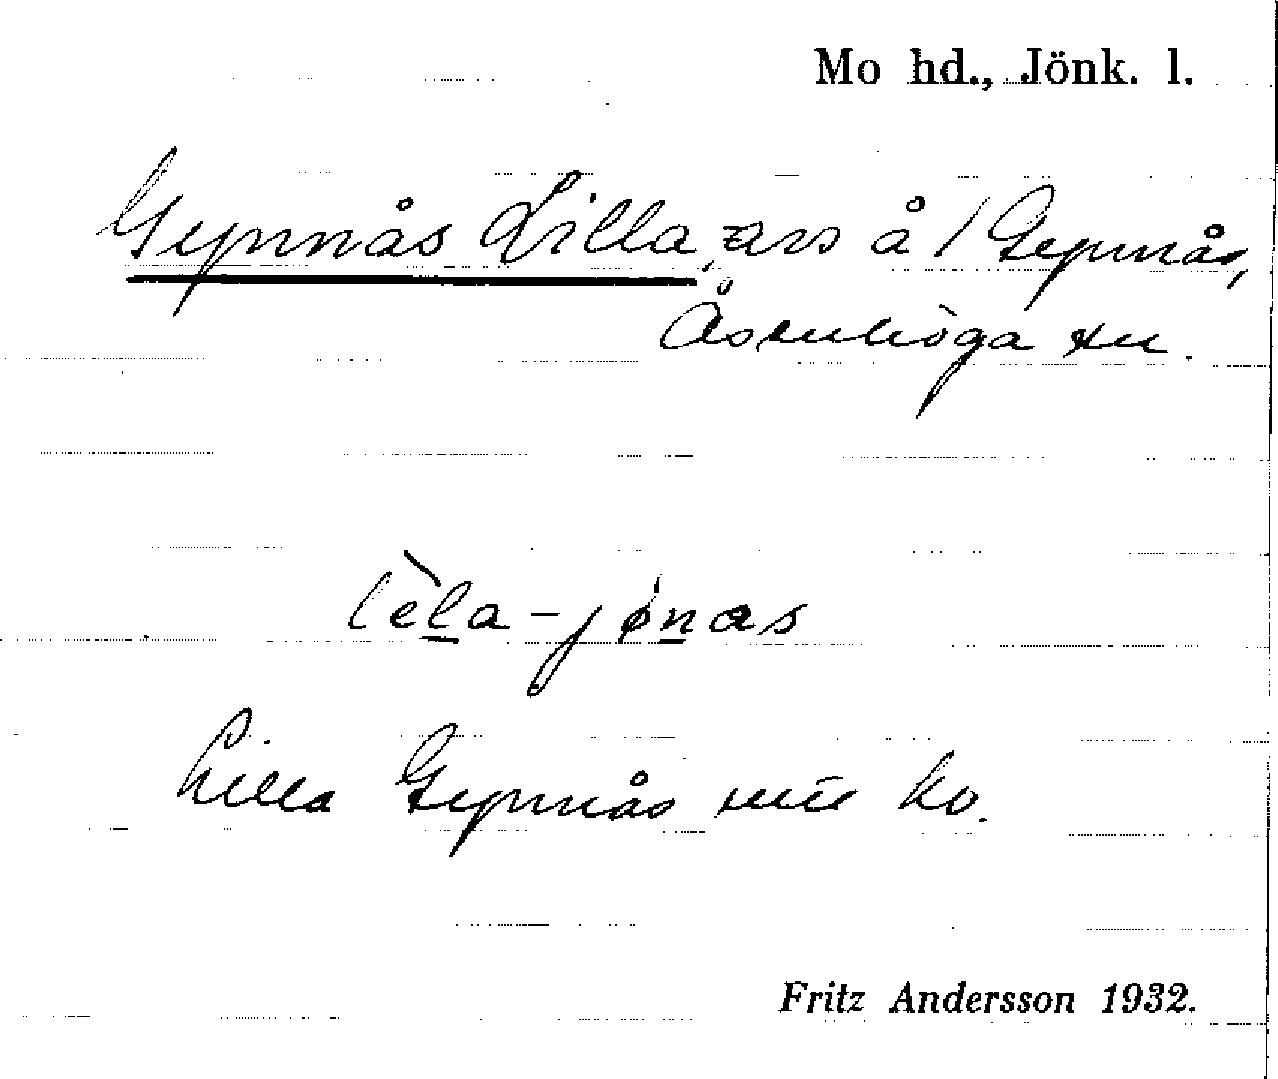 Mo hd., Jönk. l.
Gynnås Lilla, avs å 1 Gynnås,
Åsenhöga sn.
lèla-jønas
Lilla Gynnås ko.
Fritz Andersson 1932.